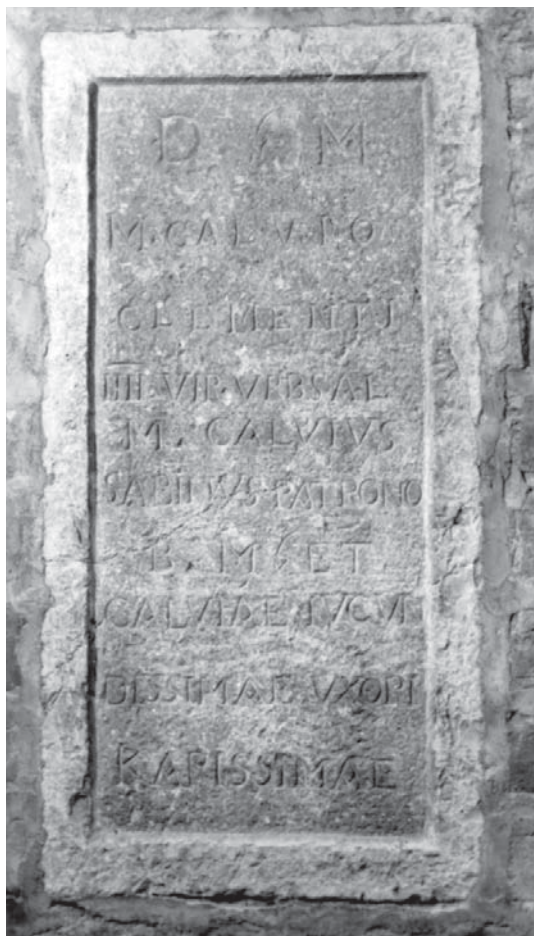 D M
M. CALVI.O
CLEMENTI
IIII. VIR. VRBSAL
M. CALVIVS
SABIDVS. PATRONO
B. M. ET.
CALVIAE. IVCVN
DISSIMAE. VXORI
RARISSIMAE